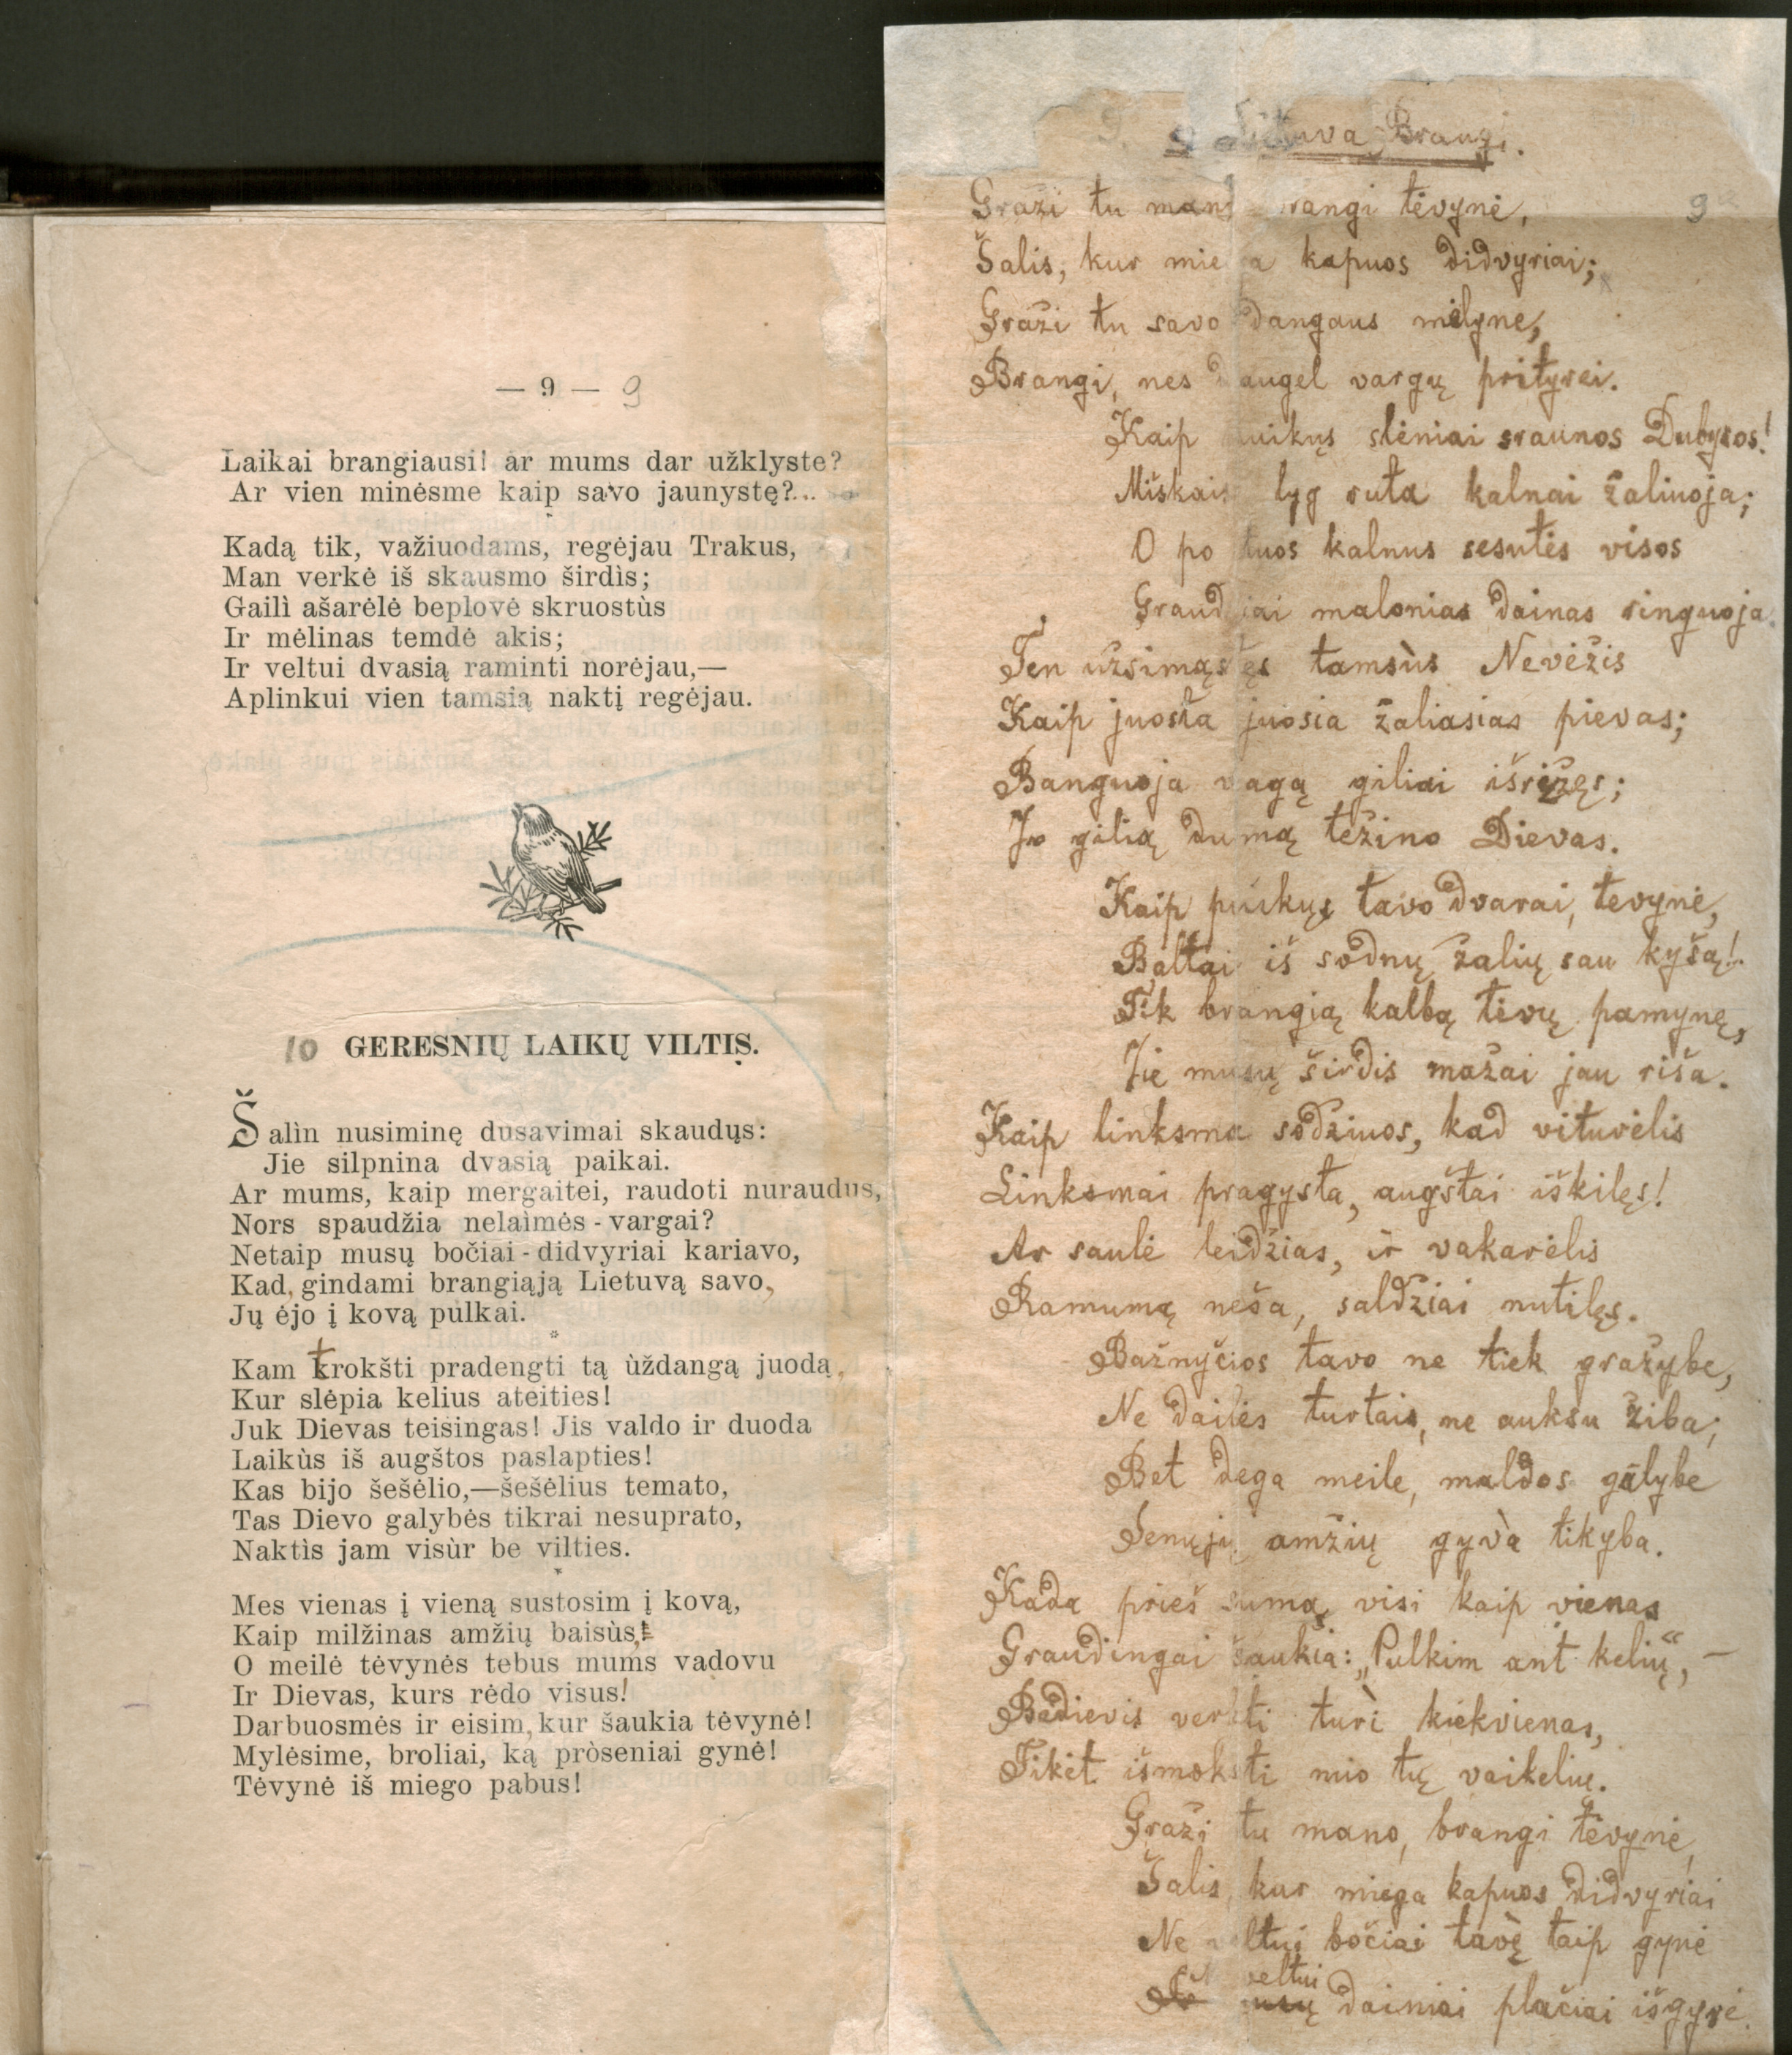 — 9 — 9
Laikai brangiausi! ar mums dar užklyste?
Ar vien minėsme kaip savo jaunystę?...
Kadą tik, važiuodams, regėjau Trakus,
Man verkė iš skausmo širdìs;
Gailì ašarėlė beplovė skruostùs
Ir mėlinas temdė akis;
Ir veltui dvasią raminti norėjau,—
Aplinkui vien tamsią naktį regėjau.
10 GERESNIŲ LAIKŲ VILTIS.
Šalìn nusiminę dusavimai skaudųs:
Jie silpnina dvasią paikai.
Ar mums, kaip mergaitei, raudoti nuraudus,
Nors spaudžia nelaimės - vargai?
Netaip musų bočiai - didvyriai kariavo,
Kad, gindami brangiąją Lietuvą savo,
Jų ėjo į kovą pulkai.
*
Kam trokšti pradengti tą ùždangą juodą,
Kur slėpia kelius ateities!
Juk Dievas teisingas! Jis valdo ir duoda
Laikùs iš augštos paslapties!
Kas bijo šešėlio,—šešėlius temato,
Tas Dievo galybės tikrai nesuprato,
Naktìs jam visùr be vilties.
*
Mes vienas į vieną sustosim į kovą,
Kaip milžinas amžių baisùs,
O meilė tėvynės tebus mums vadovu
Ir Dievas, kurs rėdo visus!
Darbuosmės ir eisim, kur šaukia tėvynė!
Mylėsime, broliai, ką pròseniai gynė!
Tėvynė iš miego pabus!
9 Lietuva Brangi.
9
Graži tu mano rangi tėvynė,
Šalis, kur miega kapuos didvyriai;
Graži tu savo dangaus mėlyne,
Brangi, nes daugel vargų prityrei.
Kaip puikųs slėniai sraunos Dubysos!
Miškais lyg ruta kalnai žaliuoja;
O po tuos kalnus sesutės visos
Graudžiai malonias dainas ringuoja.
Ten užsimąstęs tamsùs Nevėžis
Kaip juosta juosia žaliasias pievas;
Banguoja vagą giliai išrėžęs;
Jo gilią dumą težino Dievas.
Kaip puikųs tavo dvarai, tevynė,
Baltai iš sodnų žalių sau kyšą!
Tik brangią kalbą tėvų pamynę,
Jie musų širdis mažai jau riša.
Kaip linksma sodžiuos, kad vituvėlis
Linksmai pragysta, augštai iškilęs!
Ar saulė leidžias, ir vakarėlis
Ramumą neša, saldžiai nutilęs.
Bažnyčios tavo ne tiek gražybe,
Ne dailės turtais, ne auksu žiba;
Bet dega meile, maldos galybe
Senųjų amžių gyvà tikyba.
Kada prieš sumą visi kaip vienas
Graudingai šaukia: „Pulkim ant kelių“, —
Bedievis verkti turì kiekvienas,
Tikėt išmokti nuo tų vaikelių.
Graži tu mano, brangi tėvynė,
Šalis, kur miega kapuos didvyriai
Ne veltui bočiai tavę taip gynė
veltui
dainiai plačiai išgyrė.